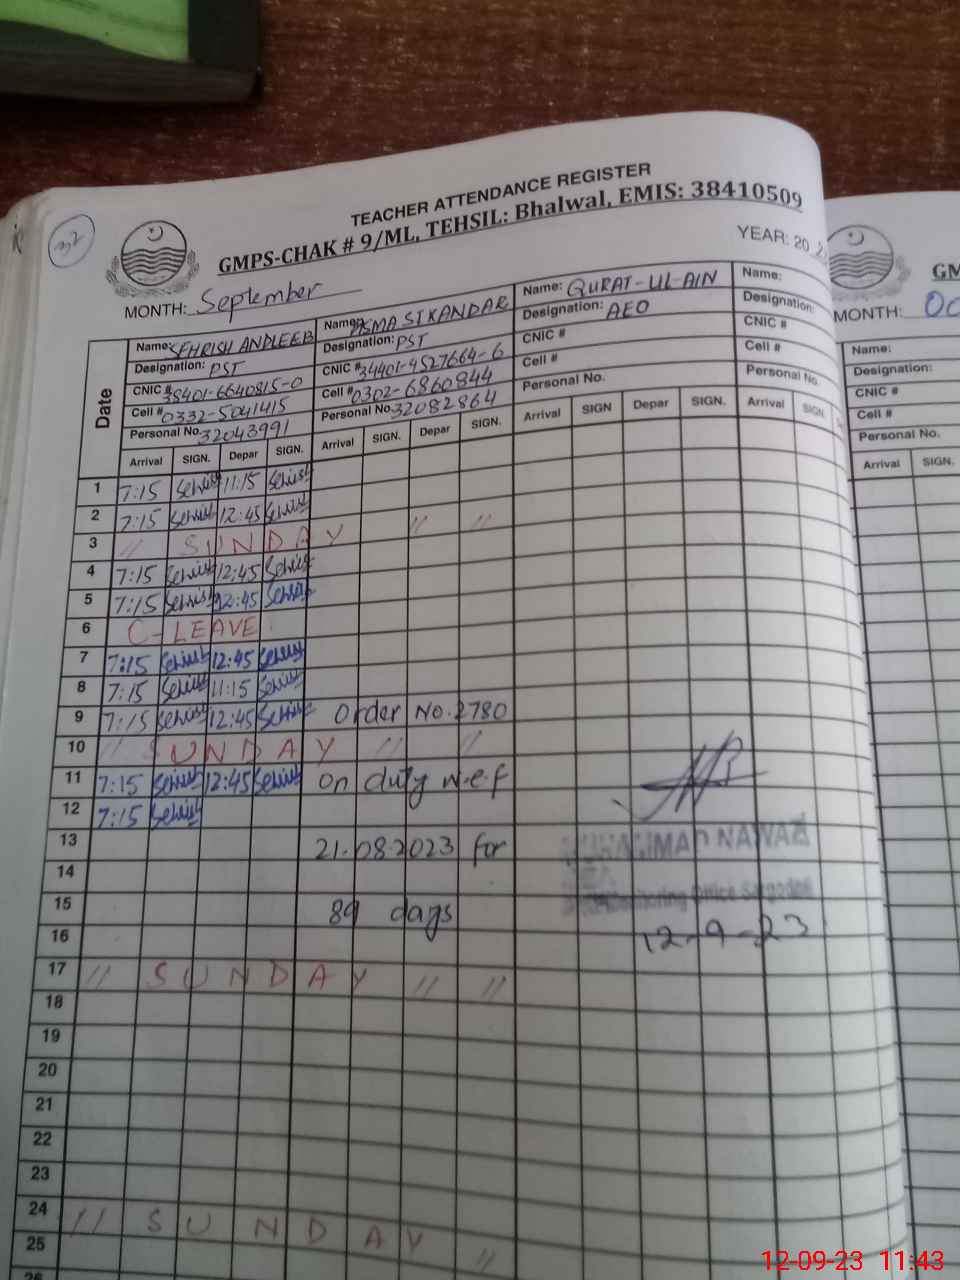 32
TEACHER ATTENDANCE REGISTER
GMPS-CHAK # 9/ML, TEHSIL: Bhalwal, EMIS: 38410509
YEAR: 202
MONTH: September
Date
Name: SEHRISH ANDLEEB
Designation: PST
CNIC # 38401-6640815-0
Cell # 0332-5041415
Personal No. 32043991
Name: ASMA SIKANDAR
Designation: PST
CNIC # 34401-4527664-6
Cell # 0302-6860844
Personal No. 32082864
Name: QURAT-UL-AIN
Designation: AEO
CNIC #
Cell #
Personal No.
Name:
Designation:
CNIC #
Cell #
Personal No.
Arrival SIGN. Depar SIGN. Arrival SIGN. Depar SIGN. Arrival SIGN Depar SIGN. Arrival SIGN.
1 7:15 Sehrish 11:15 Sehrish
2 7:15 Sehrish 12:45 Sehrish
3 // SUNDAY // //
4 7:15 Sehrish 12:45 Sehrish
5 7:15 Sehrish 12:45 Sehrish
6 C-LEAVE
7 7:15 Sehrish 12:45 Sehrish
8 7:15 Sehrish 11:15 Sehrish
9 7:15 Sehrish 12:45 Sehrish Order No. 2780
10 // SUNDAY // //
11 7:15 Sehrish 12:45 Sehrish on duty w.e.f
12 7:15 Sehrish
13 21.08.2023 for
MUHAMMAD NAWAZ
14
Monitoring Office Sargodha
15 89 days
12-9-23
16
17 // SUNDAY // //
18
19
20
21
22
23
24 // SUNDAY //
25
GM
MONTH: Oc
Name:
Designation:
CNIC #
Cell #
Personal No.
Arrival SIGN.
12-09-23 11:43